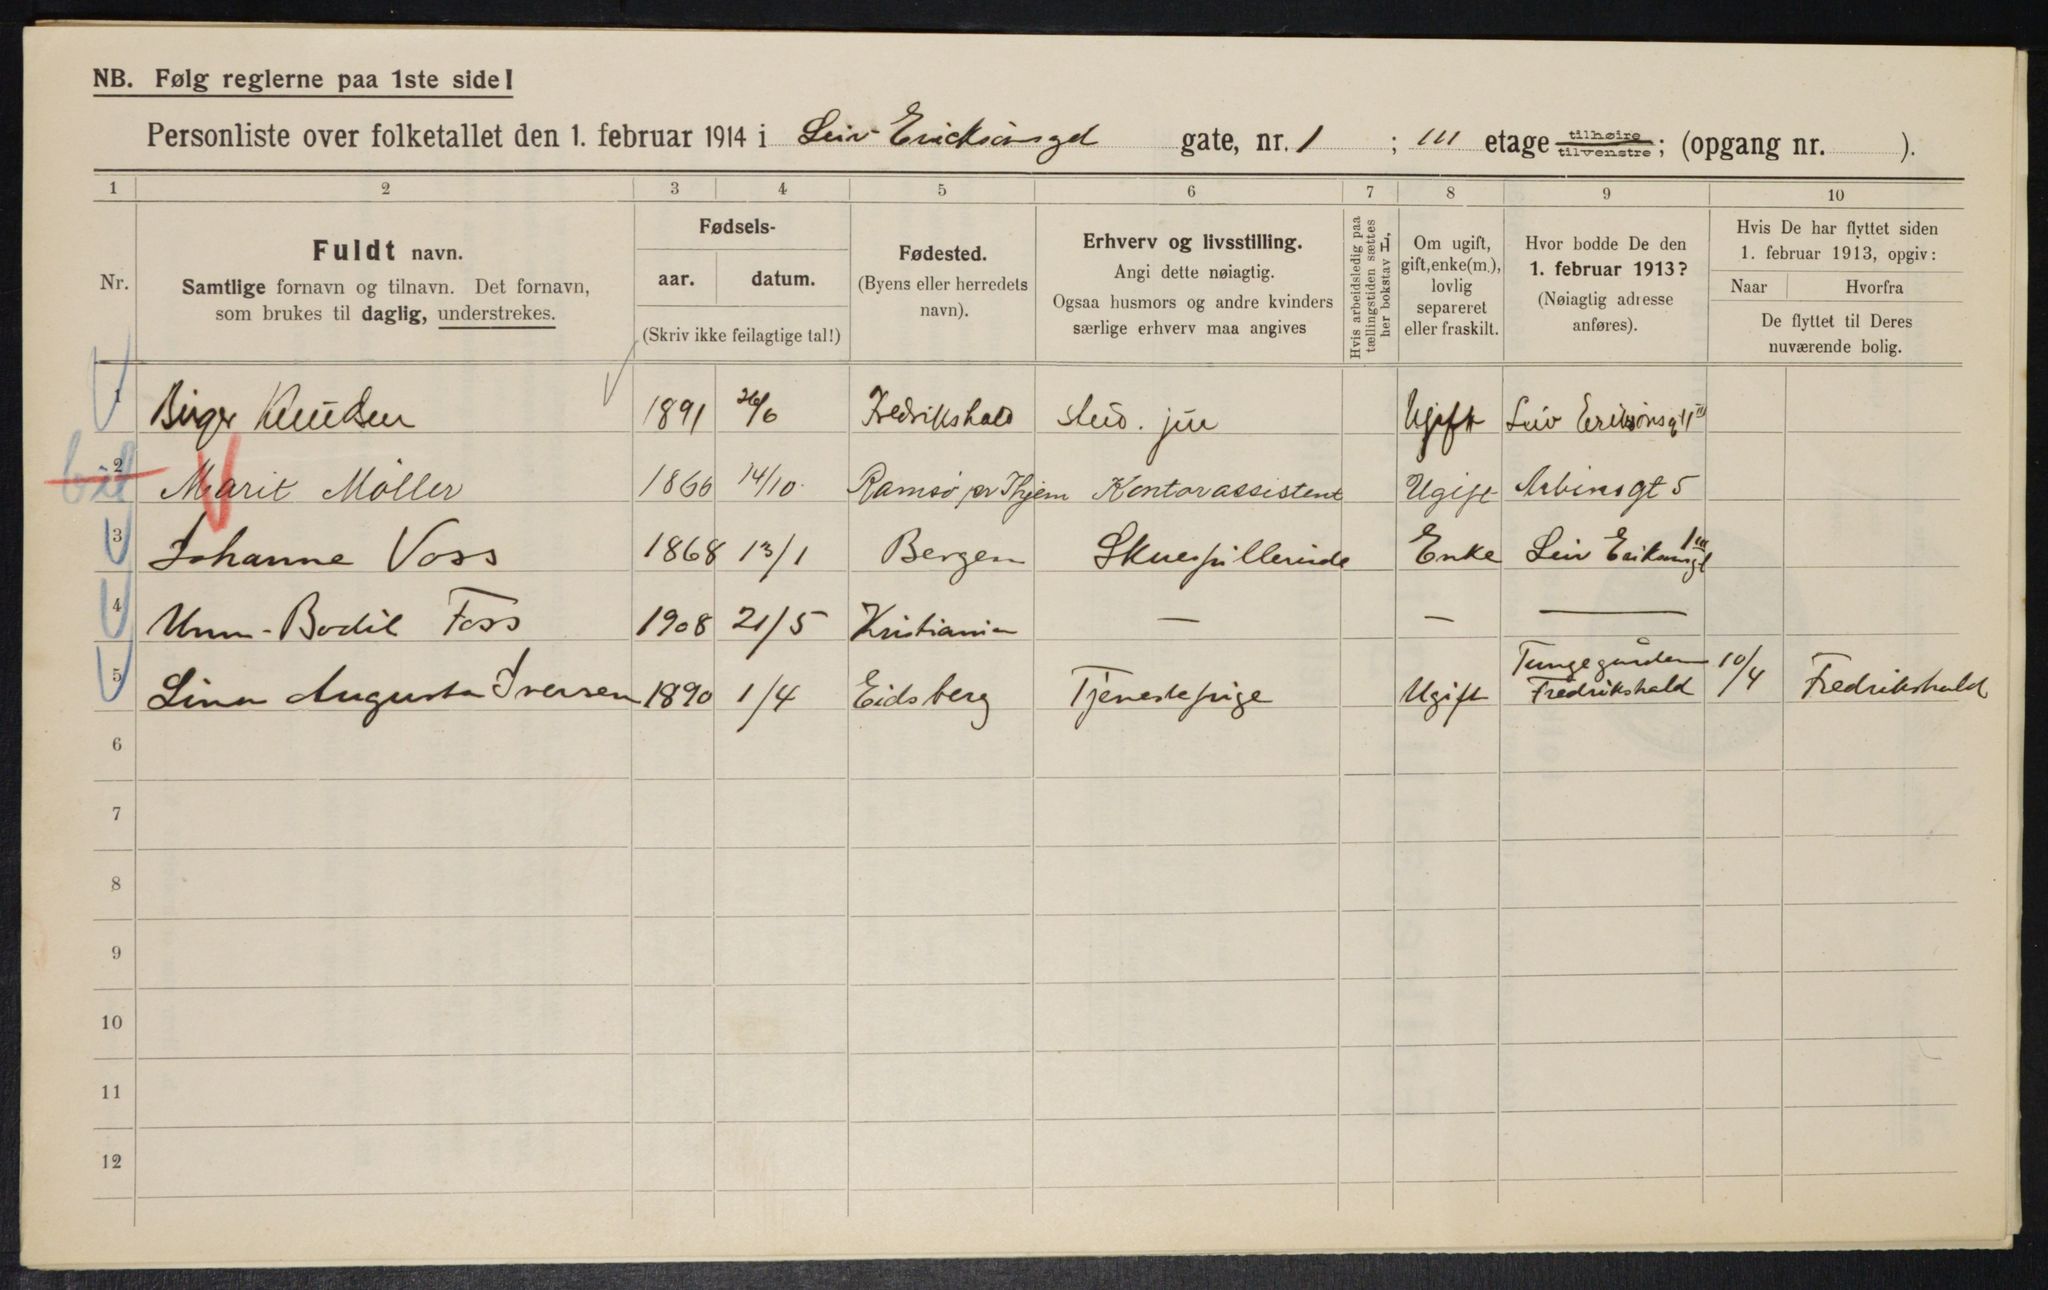 NB. Følg reglerne paa 1ste side!
Personliste over folketallet den 1. februar 1914 i Leiv Ericksönsgd gate, nr. 1 ; III etage tilhøire tilvenstre; (opgang nr. ).
1 2 3 4 5 6 7 8 9 10
Nr.
Fuldt navn.
Samtlige fornavn og tilnavn. Det fornavn,
som brukes til daglig, understrekes.
Fødsels-
aar. datum.
(Skriv ikke feilagtige tal!)
Fødested.
(Byens eller herredets
navn).
Erhverv og livsstilling.
Angi dette nøiagtig.
Ogsaa husmors og andre kvinders
særlige erhverv maa angives
Hvis arbeidsledig paa
tællingstiden sættes
her bokstav H,
Om ugift,
gift, enke(m.),
lovlig
separeret
eller fraskilt.
Hvor bodde De den
1. februar 1913?
(Nøiagtig adresse
anføres).
Hvis De har flyttet siden
1. februar 1913, opgiv:
Naar Hvorfra
De flyttet til Deres
nuværende bolig.
1 Birger Knudsen 1891 26/6 Fredrikshald stud. jur Ugift Leiv Eriksönsgt 1 III
2 Marit Möller 1866 14/10 Ramsö pr Thjem Kontorassistent Ugift Arbinsgt 5
3 Johanne Voss 1868 13/1 Bergen Skuespillerinde Enke Leiv Eriksonsgt 1 III
4 Unn-Bodil Foss 1908 21/5 Kristiania — — —
5 Lina Augusta Iversen 1890 1/4 Eidsberg Tjenestepige Ugift Tungegården Fredrikshald 10/4 Fredrikshald
6
7
8
9
10
11
12